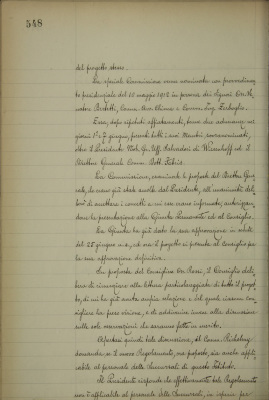 548
del progetto stesso.
La speciale Commissione venne nominata con provvedimen-
to presidenziale del 11 maggio 1912 in persona dei Signori Cav. Uff.
Bertotti, Comm. Avv. Chimi e Comm. Ing.
Essa, dopo ripetuti affiatamenti, tenne due adunanze nei
giorni 1° e 7 giugno, presenti tutti i suoi membri sovranominati,
oltre il Presidente Nob. Gr. Uff. Salvadori di Wiesenhoff ed il
Direttore Generale Comm. Dott.
La Commissione, esaminate le proposte del Direttore Gene-
rale, le quali già state accolte dal Presidente, all'unanimità deli-
berò di accettare i concetti a cui esse erano informate, autorizzan-
done la presentazione alla Giunta Permanente ed al Consiglio.
La Giunta ha già dato la sua approvazione in seduta
del 25 giugno u.s., ed ora il progetto si presenta al Consiglio per
la sua approvazione definitiva.
Su proposta del Consigliere On. Rossi, il Consiglio deli-
bera di rinunziare alla lettura particolareggiata di tutto il proget-
to, di cui ha già avuta ampia relazione e del quale ciascun con-
sigliere ha preso visione, e di addivenire invece alla discussione
sulle sole osservazioni che saranno fatte in merito.
Apertasi quindi tale discussione, il Comm.
domanda se il nuovo Regolamento, ora proposto, sia anche appli-
cabile al personale delle Succursali di questo Istituto.
Il Presidente risponde che effettivamente tale Regolamento
non è applicabile al personale delle Succursali, in specie per